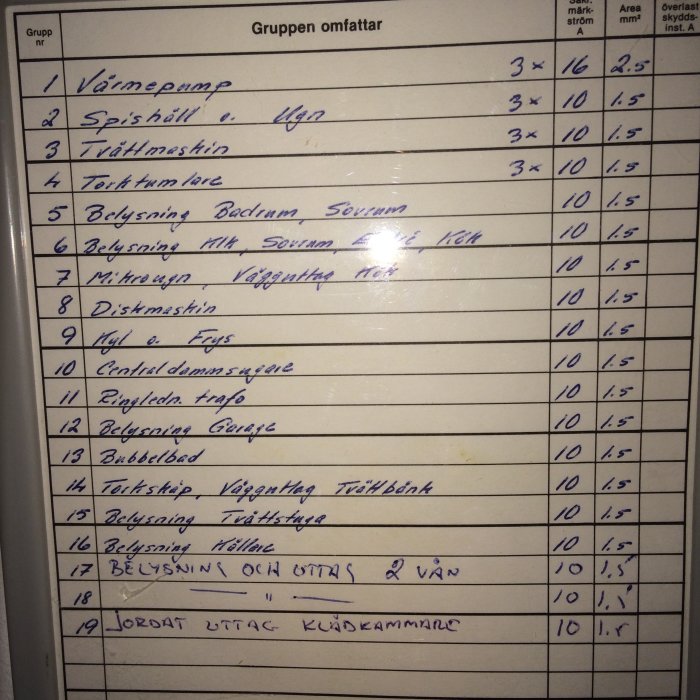 Grupp nr Gruppen omfattar märk- ström A Area mm² överlast skydds- inst. A
1 Värmepump 3x 16 2.5
2 Spishäll o. Ugn 3x 10 1.5
3 Tvättmaskin 3x 10 1.5
4 Torktumlare 3x 10 1.5
5 Belysning Badrum, Sovrum 10 1.5
6 Belysning Klk, Sovrum, Entré, Kök 10 1.5
7 Mikrougn, Vägguttag Kök 10 1.5
8 Diskmaskin 10 1.5
9 Kyl o. Frys 10 1.5
10 Centraldammsugare 10 1.5
11 Ringledn. trafo 10 1.5
12 Belysning Garage 10 1.5
13 Bubbelbad 10 1.5
14 Torkskåp, Vägguttag Tvättbänk 10 1.5
15 Belysning Tvättstuga 10 1.5
16 Belysning Källare 10 1.5
17 BELYSNING OCH UTTAG 2 VÅN 10 1.5
18 — " — 10 1.5
19 JORDAT UTTAG KLÄDKAMMARE 10 1.5